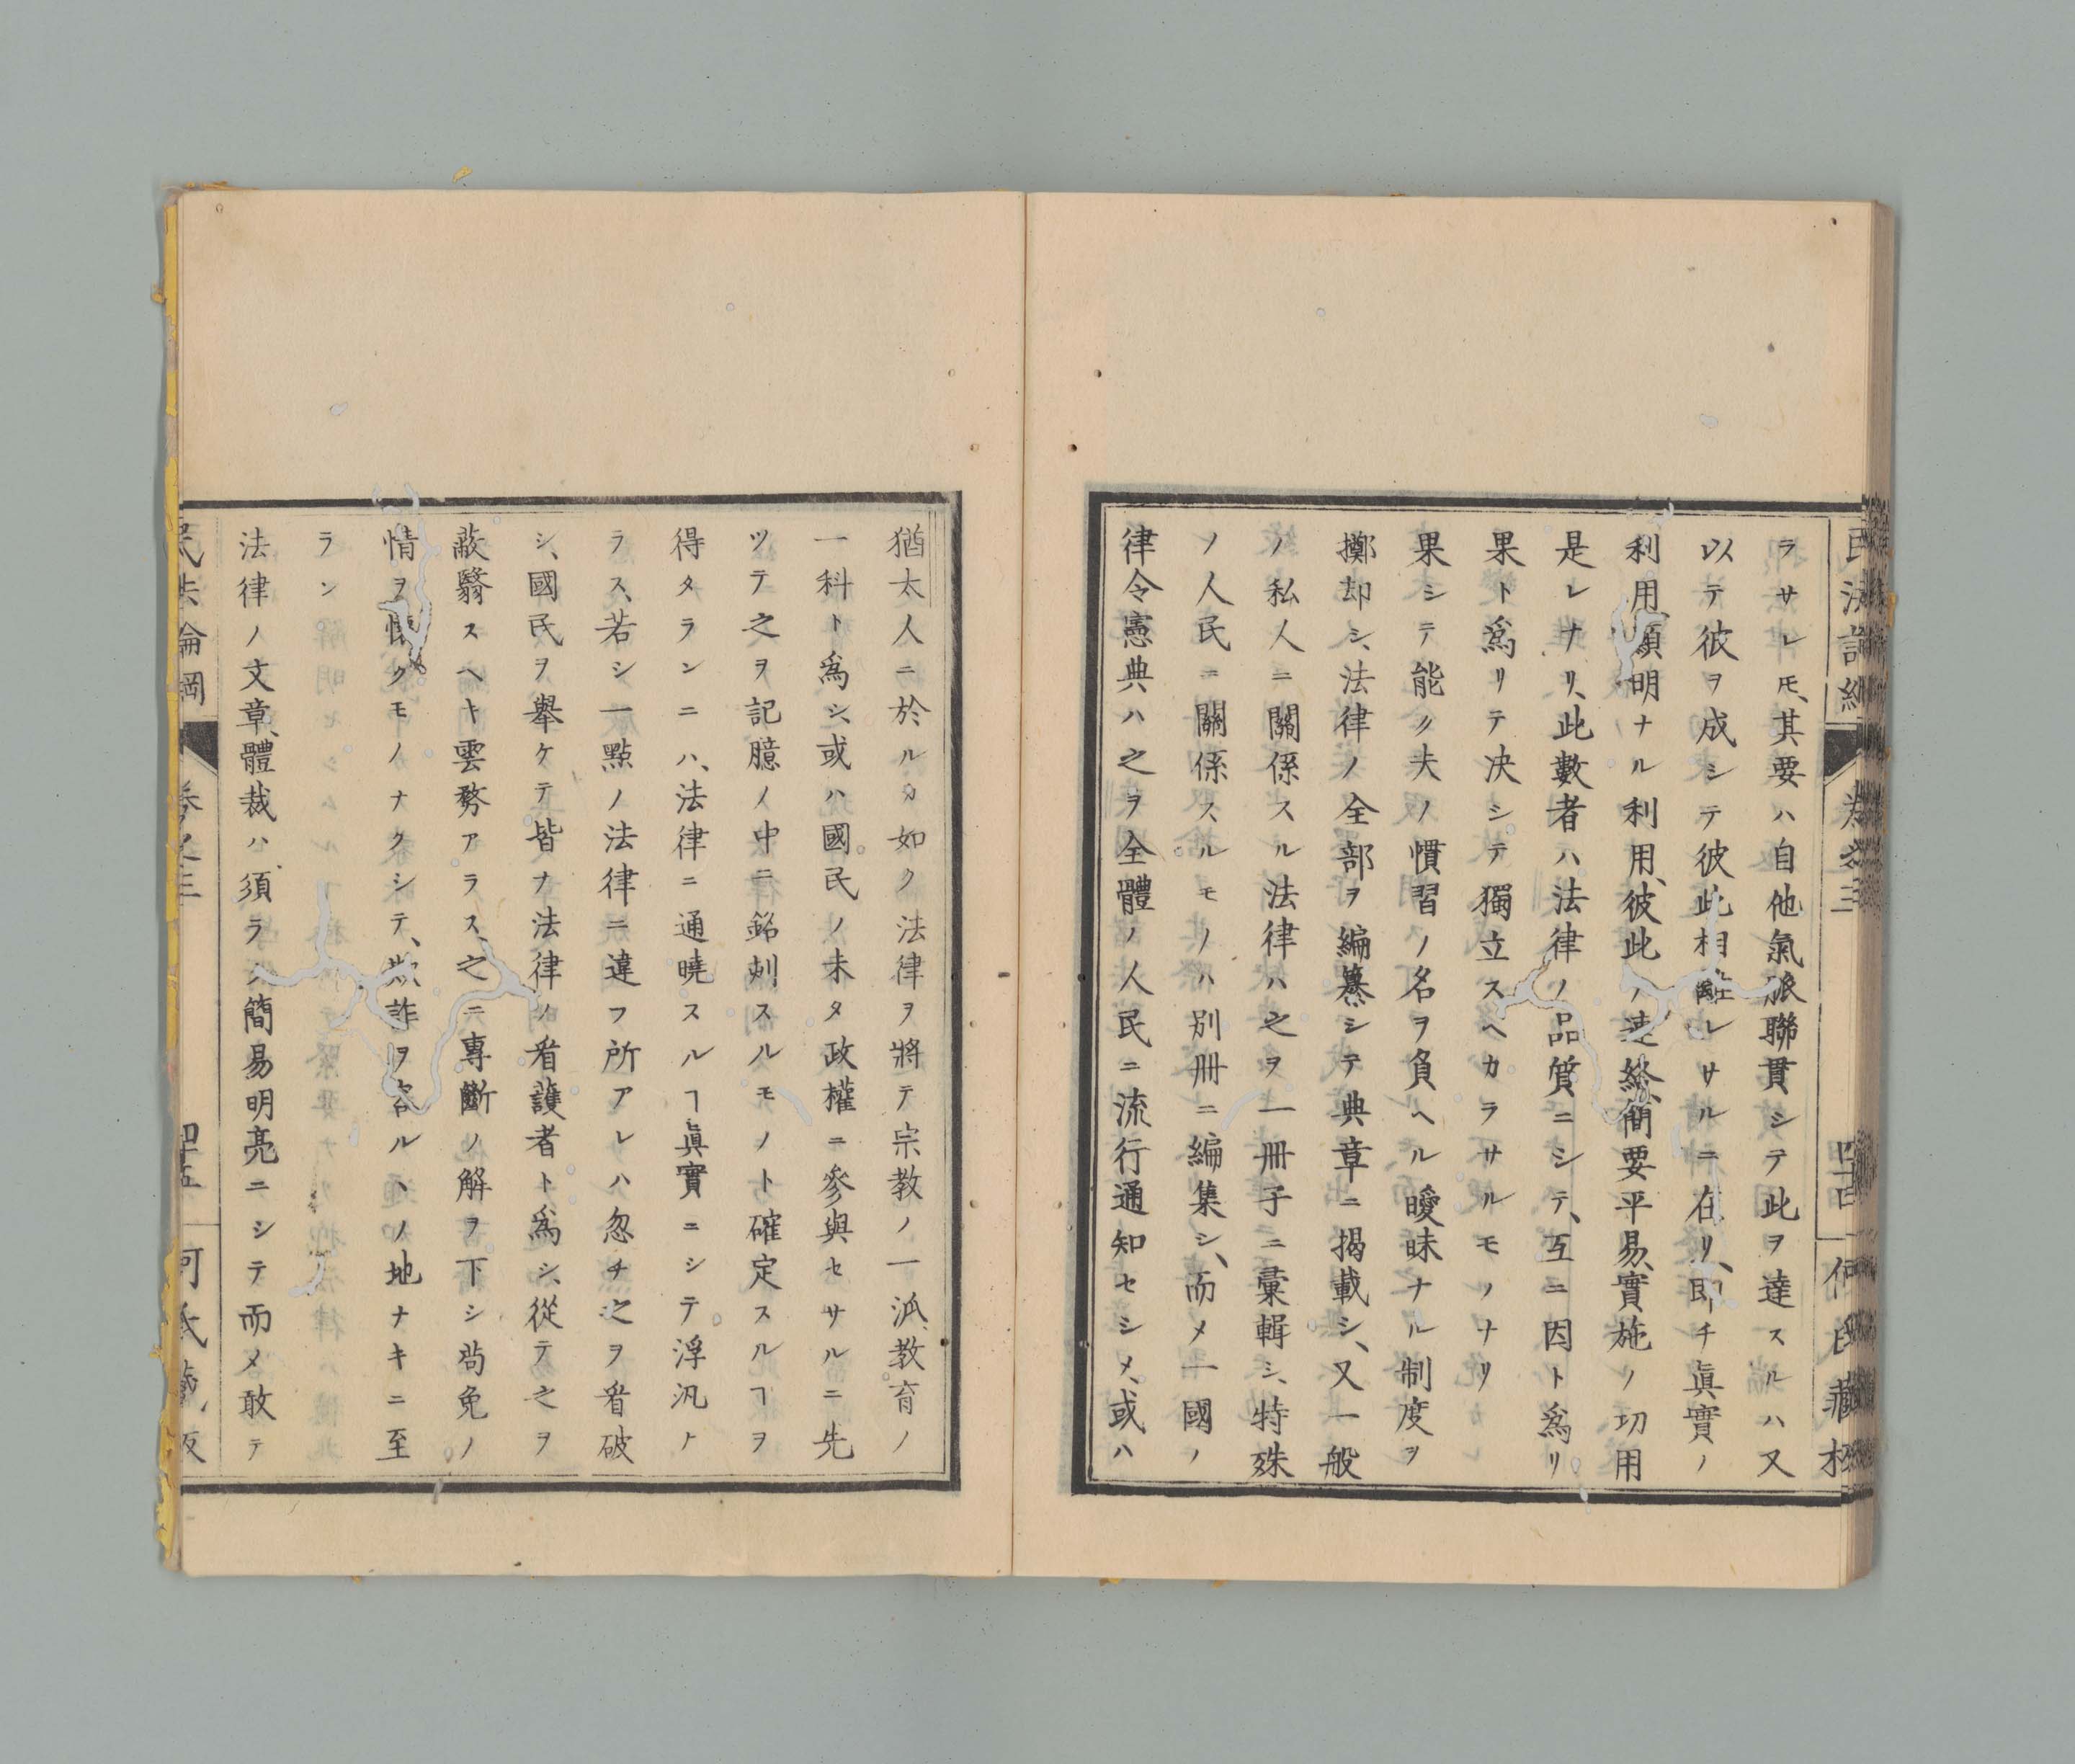 ラサレ𪜈、其要ハ自他氣脉聯貫シテ此ヲ達スルハ又
以テ彼ヲ成シテ彼此相離レサルニ在リ、即チ眞實ノ
利用、顯明ナル利用、彼此ノ連絡、簡要平易、實施ノ切用
是レナリ、此數者ハ法律ノ品質ニシテ、互ニ因ト爲リ
果ト爲リテ决シテ獨立スヘカラサルモノナリ
果シテ能ク夫ノ慣習ノ名ヲ負ヘル曖昧ナル制度ヲ
擲却シ、法律ノ全部ヲ編纂シテ典章ニ揭載シ、又一般
ノ私人ニ關係スル法律ハ之ヲ一冊子ニ彙輯シ、特殊
ノ人民ニ關係スルモノハ別冊ニ編集シ、而メ一國ノ
律令憲典ハ之ヲ全體ノ人民ニ流行通知セシメ、或ハ
民法論綱 卷之三 四十四 何氏藏板
猶太人ニ於ルカ如ク法律ヲ將テ宗教ノ一派、教育ノ
一科ト爲シ、或ハ國民ノ未タ政權ニ參與セサルニ先
ツテ之ヲ記臆ノ中ニ銘刺スルモノト確定スルヿヲ
得タランニハ、法律ニ通曉スルヿ眞實ニシテ浮汎ナ
ラス、若シ一點ノ法律ニ違フ所アレハ忽チ之ヲ看破
シ、國民ヲ擧ケテ皆ナ法律ノ看護者ト爲シ、從テ之ヲ
蔽翳スヘキ雲霧アラス、之ニ專斷ノ解ヲ下シ苟免ノ
情ヲ懷クモノナクシテ、欺詐ヲ容ルヽノ地ナキニ至
ラン
法律ノ文章、體裁ハ須ラク簡易明亮ニシテ而メ敢テ
民法論綱 卷之三 四十五 何氏藏板